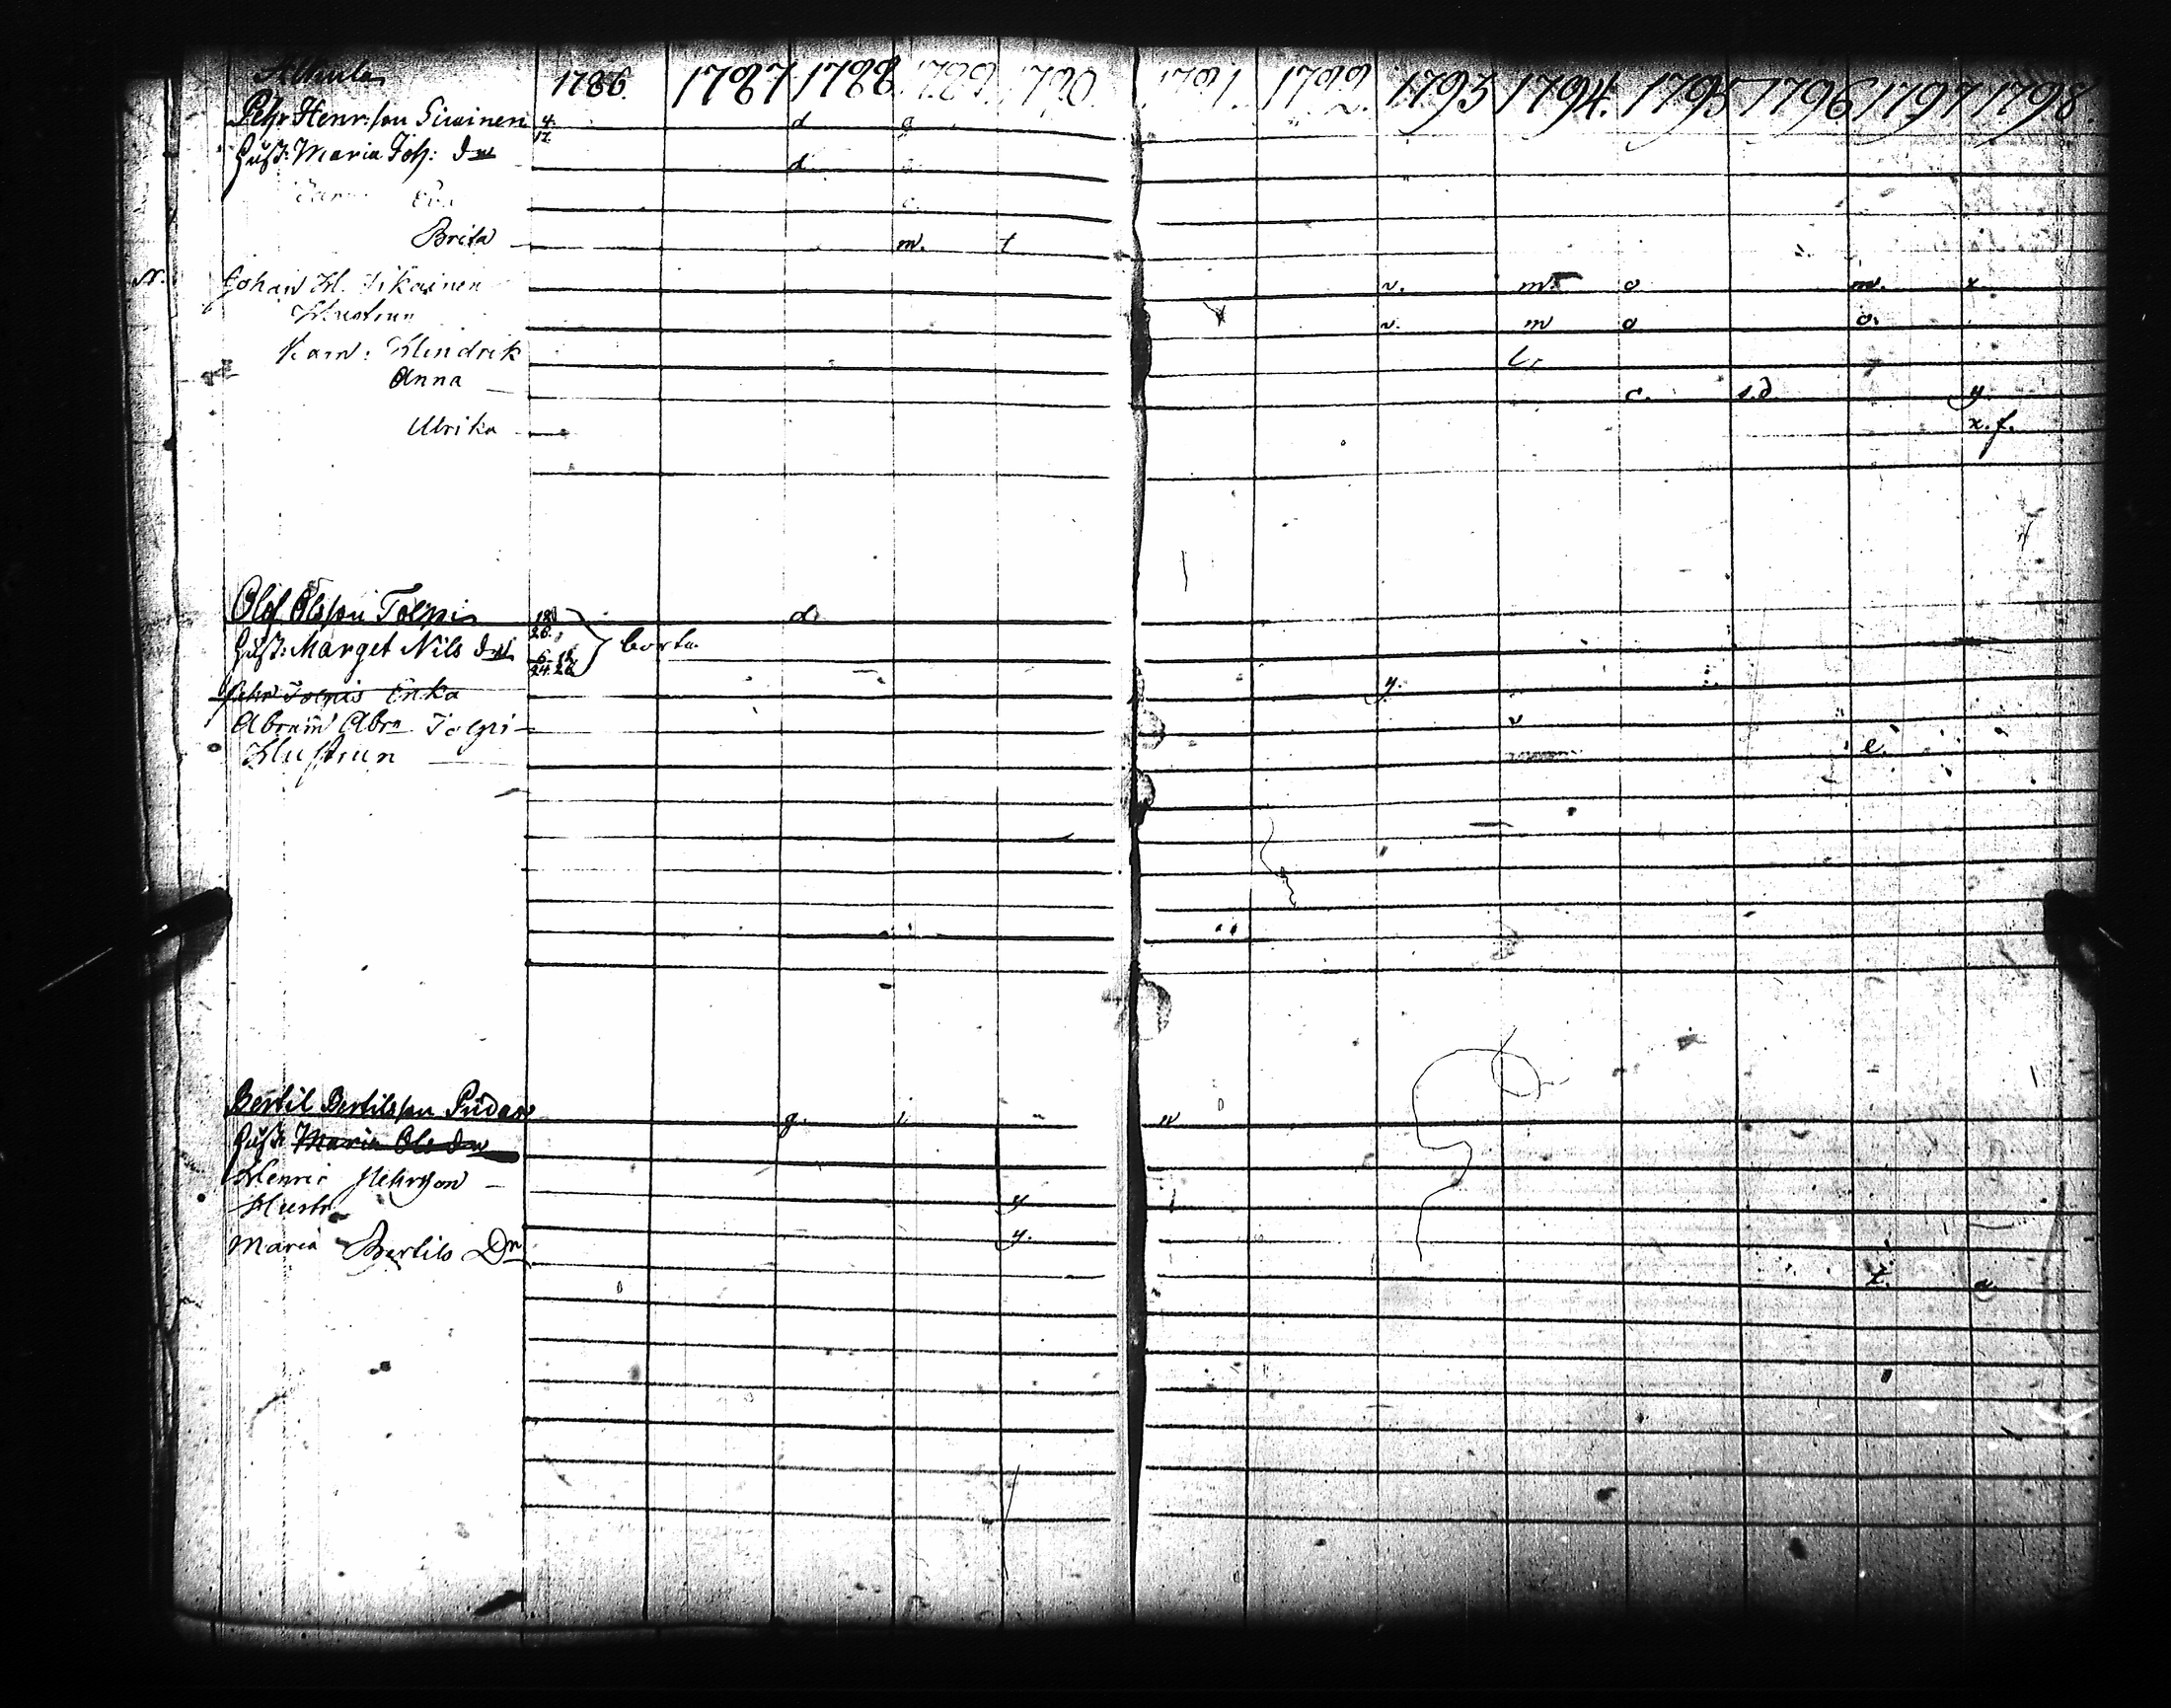 1786. 1787 1788 1789 1790 1791. 1792 1793 1794. 1795 1796 1797 1798.
Pehr Henr:sson 4. d g
17.
Hust: Maria Joh: dr d
Eva c.
Brita m. t
N. Johan H. v. m o m. x
Hustrun v. m o o.
Barn: Hendrik
Anna c. s.d y
Ulrika x.f.
Olof Olsson Tolpis 18 d.
20.
Hust: Marget Nils dr 6. 18 borta
24. 26
Pehr Tolpis Enka y.
Abram Abrn Tolpi v
Hustrun e.
Bertil Bertilsson Pudas g. i n
Hust: Maria Ols dr
Henric Pehrsson y
Hustr y.
Maria Bertils Dr t. a